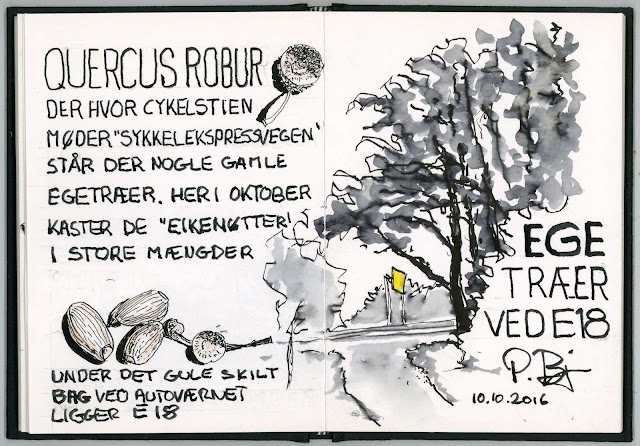 QUERCUS ROBUR
DER HVOR CYKELSTIEN
MØDER "SYKKELEKSPRESSVEGEN"
STÅR DER NOGLE GAMLE
EGETRÆER. HER I OKTOBER
KASTER DE "EIKENØTTER"
I STORE MÆNGDER
UNDER DET GULE SKILT
BAG VED AUTOVÆRNET
LIGGER E18
EGE
TRÆER
VED E18
10.10.2016